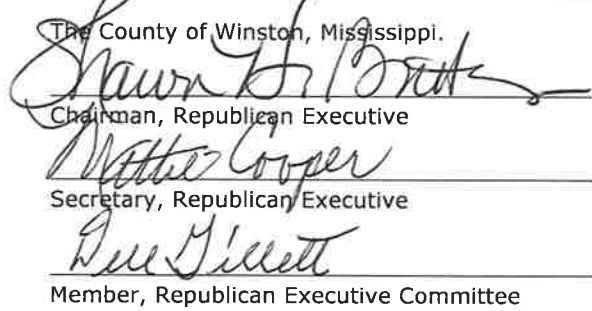 The County of Winston, Mississippi.
Shawn H. Br
Chairman, Republican Executive
Mattie Cooper
Secretary, Republican Executive
Dell Gillett
Member, Republican Executive Committee